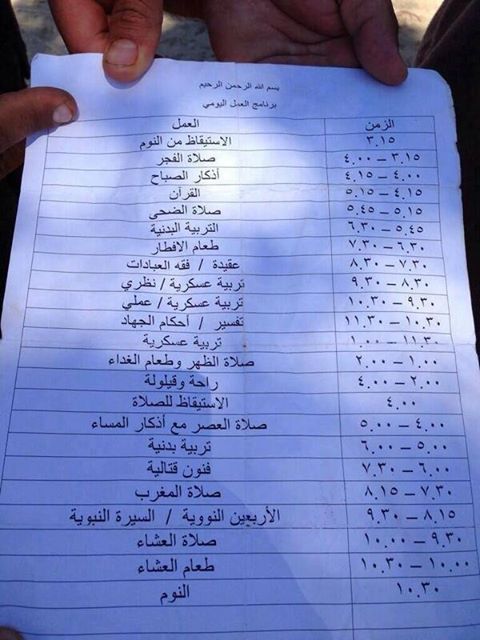 بسم الله الرحمن الرحيم
برنامج العمل اليومي
الزمن العمل
٣.١٥ الاستيقاظ من النوم
٣.١٥ – ٤.٠٠ صلاة الفجر
٤.٠٠ – ٤.١٥ أذكار الصباح
٤.١٥ – ٥.١٥ القرآن
٥.١٥ – ٥.٤٥ صلاة الضحى
٥.٤٥ – ٦.٣٠ التربية البدنية
٦.٣٠ – ٧.٣٠ طعام الافطار
٧.٣٠ – ٨.٣٠ عقيدة / فقه العبادات
٨.٣٠ – ٩.٣٠ تربية عسكرية / نظري
٩.٣٠ – ١٠.٣٠ تربية عسكرية / عملي
١٠.٣٠ – ١١.٣٠ تفسير / أحكام الجهاد
١١.٣٠ – ١.٠٠ تربية عسكرية
١.٠٠ – ٢.٠٠ صلاة الظهر وطعام الغداء
٢.٠٠ – ٤.٠٠ راحة وقيلولة
٤.٠٠ الاستيقاظ للصلاة
٤.٠٠ – ٥.٠٠ صلاة العصر مع أذكار المساء
٥.٠٠ – ٦.٠٠ تربية بدنية
٦.٠٠ – ٧.٣٠ فنون قتالية
٧.٣٠ – ٨.١٥ صلاة المغرب
٨.١٥ – ٩.٣٠ الأربعين النووية / السيرة النبوية
٩.٣٠ – ١٠.٠٠ صلاة العشاء
١٠.٠٠ – ١٠.٣٠ طعام العشاء
١٠.٣٠ النوم